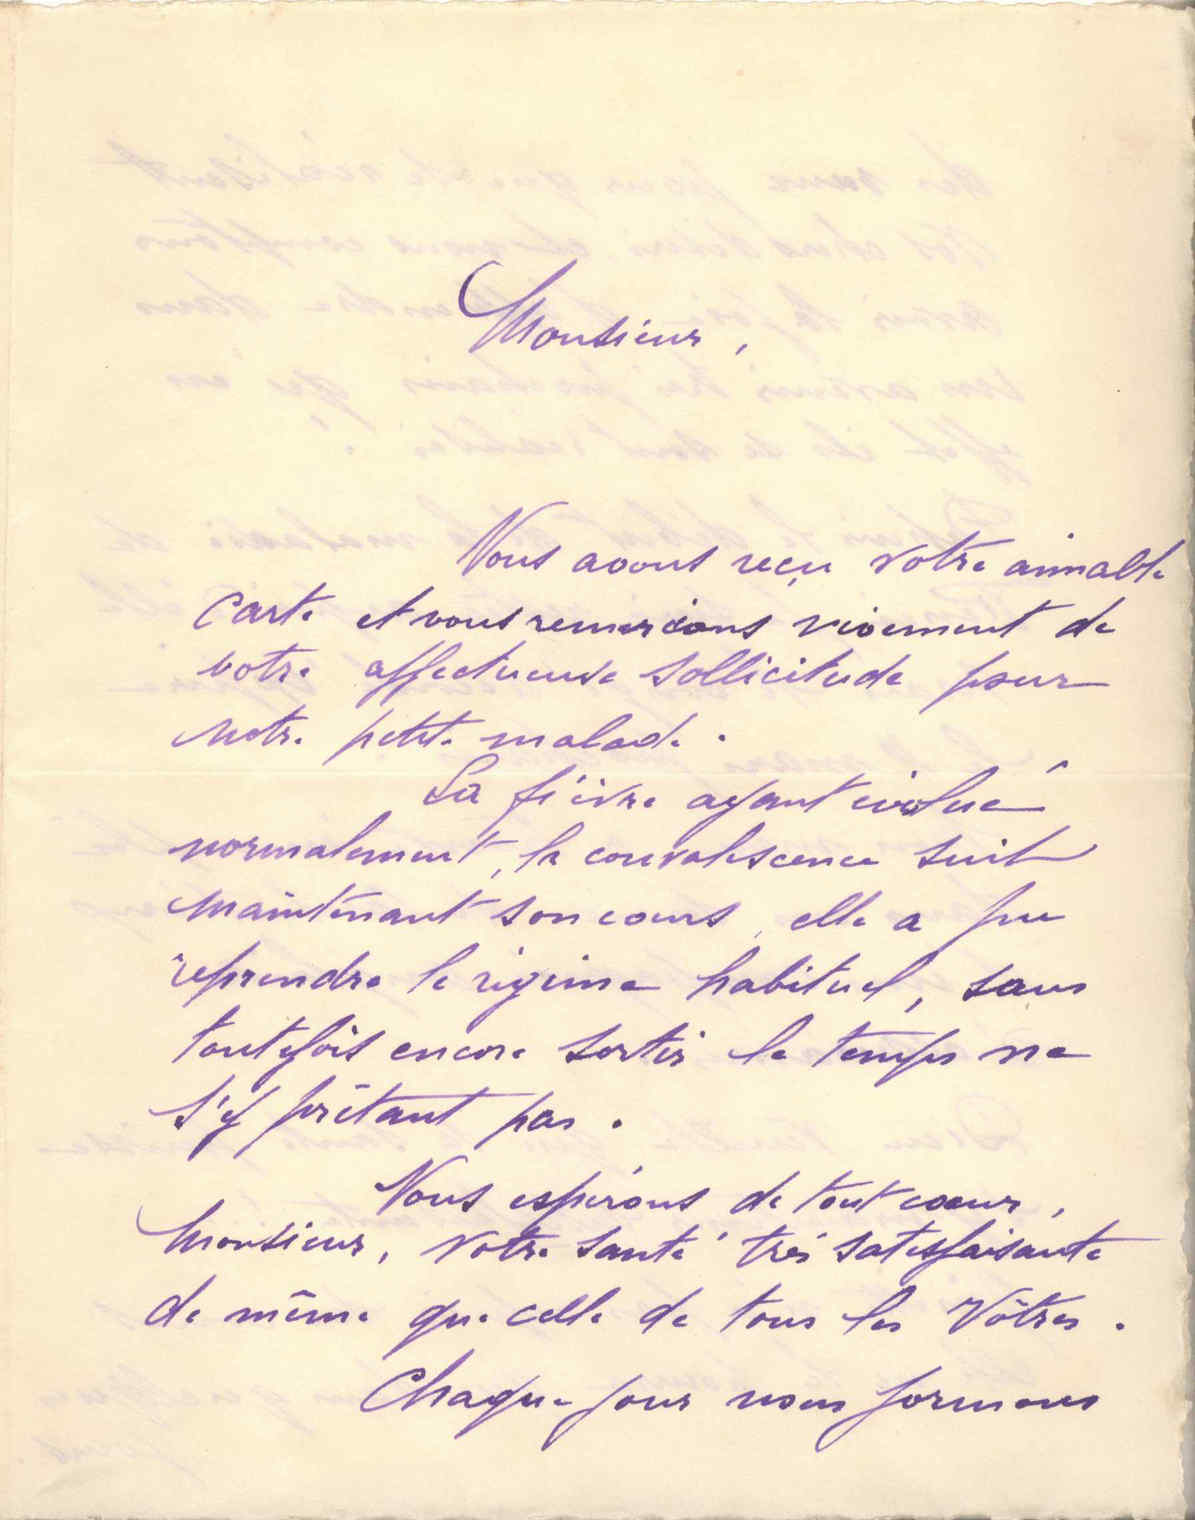 Monsieur,
Nous avons reçu votre aimable
carte et vous remercions vivement de
votre affectueuse sollicitude pour
notre petite malade.
La fièvre ayant évolué
normalement, la convalescence suit
maintenant son cours, elle a pu
reprendre le régime habituel, sans
toutefois encore sortir le temps ne
s'y prêtant pas.
Nous espérons de tout coeur,
Monsieur, votre santé très satisfaisante
de même que celle de tous les Vôtres.
Chaque jour nous formons